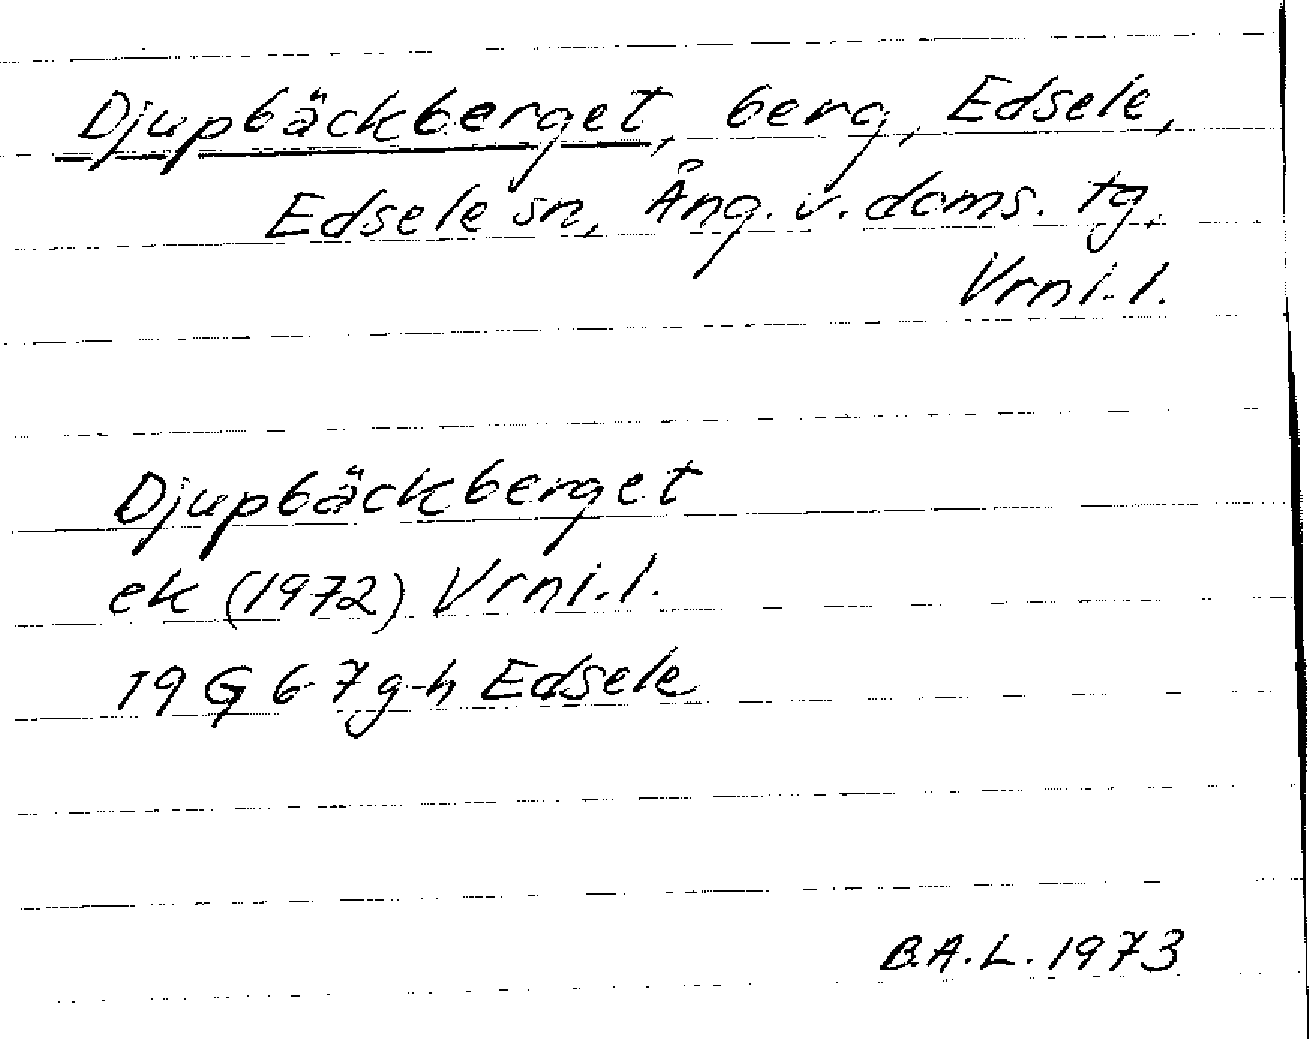 Djupbäckberget, berg, Edsele,
Edsele sn, Ång. v. doms. tg,
Vrnl. l.
Djupbäckberget
ek (1972) Vrnl. l.
19 G 6-7 g-h Edsele
B.A.L. 1973